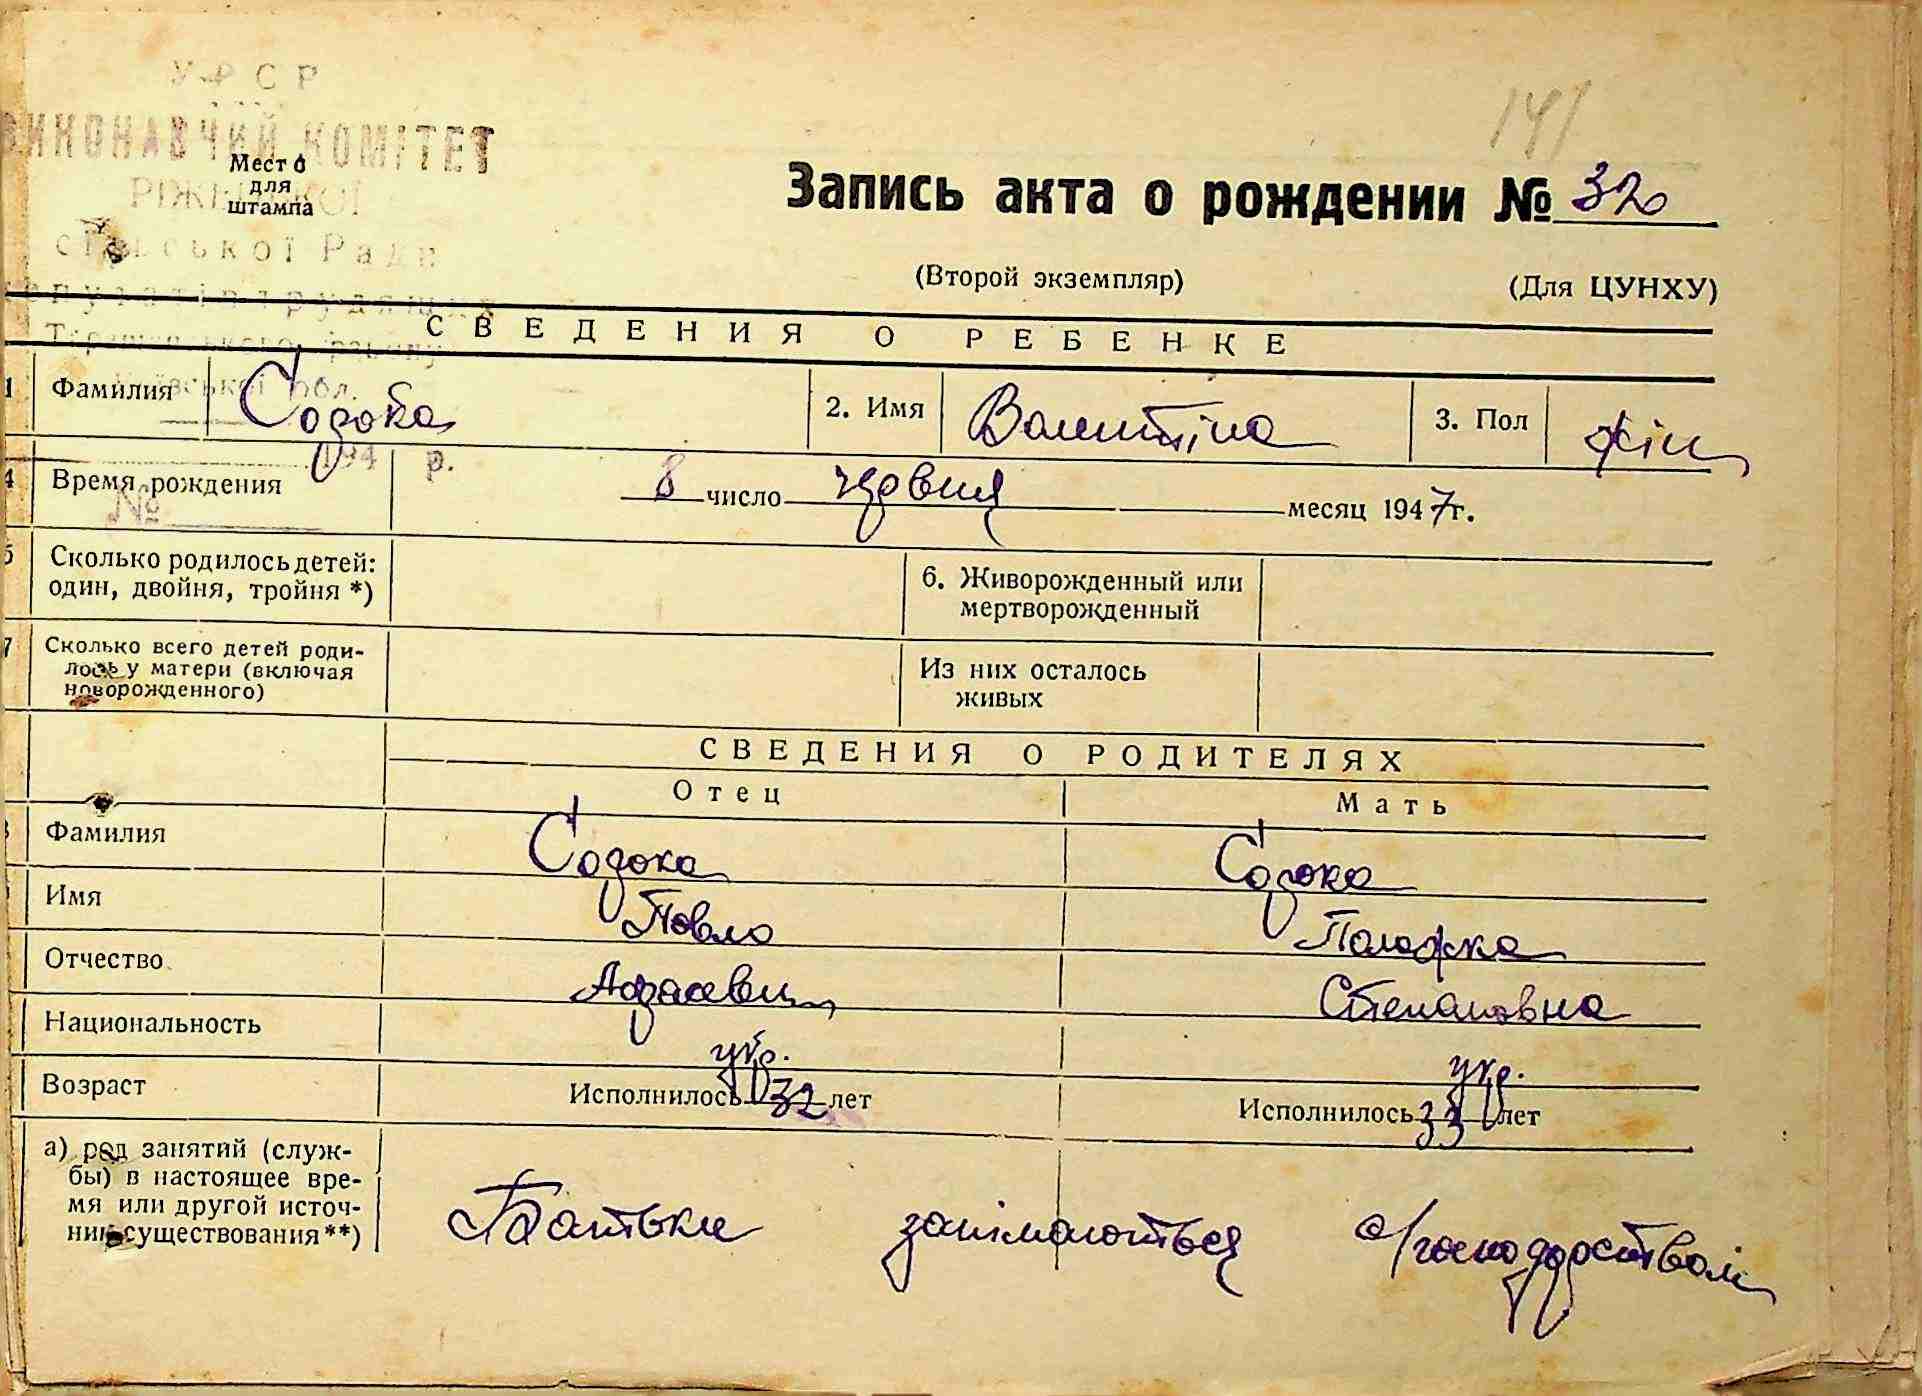 УРСР
ВИКОНАВЧИЙ КОМІТЕТ
РІЖКІВСЬКОЇ
сільської Ради
депутатів трудящих
Таращанського району
Київської обл.
194 р.
№
Место
для
штампа
141
Запись акта о рождении № 32
(Второй экземпляр)
(Для ЦУНХУ)
СВЕДЕНИЯ О РЕБЕНКЕ
1 Фамилия 2. Имя Валентіна 3. Пол жін
4 Время рождения 8 число червня месяц 1947г.
5 Сколько родилось детей:
один, двойня, тройня *)
6. Живорожденный или
мертворожденный
7 Сколько всего детей роди-
лось у матери (включая
новорожденного)
Из них осталось
живых
СВЕДЕНИЯ О РОДИТЕЛЯХ
Отец Мать
8 Фамилия
Имя Павло Палажка
Отчество Степановна
Национальность укр. укр.
Возраст Исполнилось 32 лет Исполнилось 33 лет
а) род занятий (служ-
бы) в настоящее вре-
мя или другой источ-
ник существования**)
Батьки занімаються с/господарством